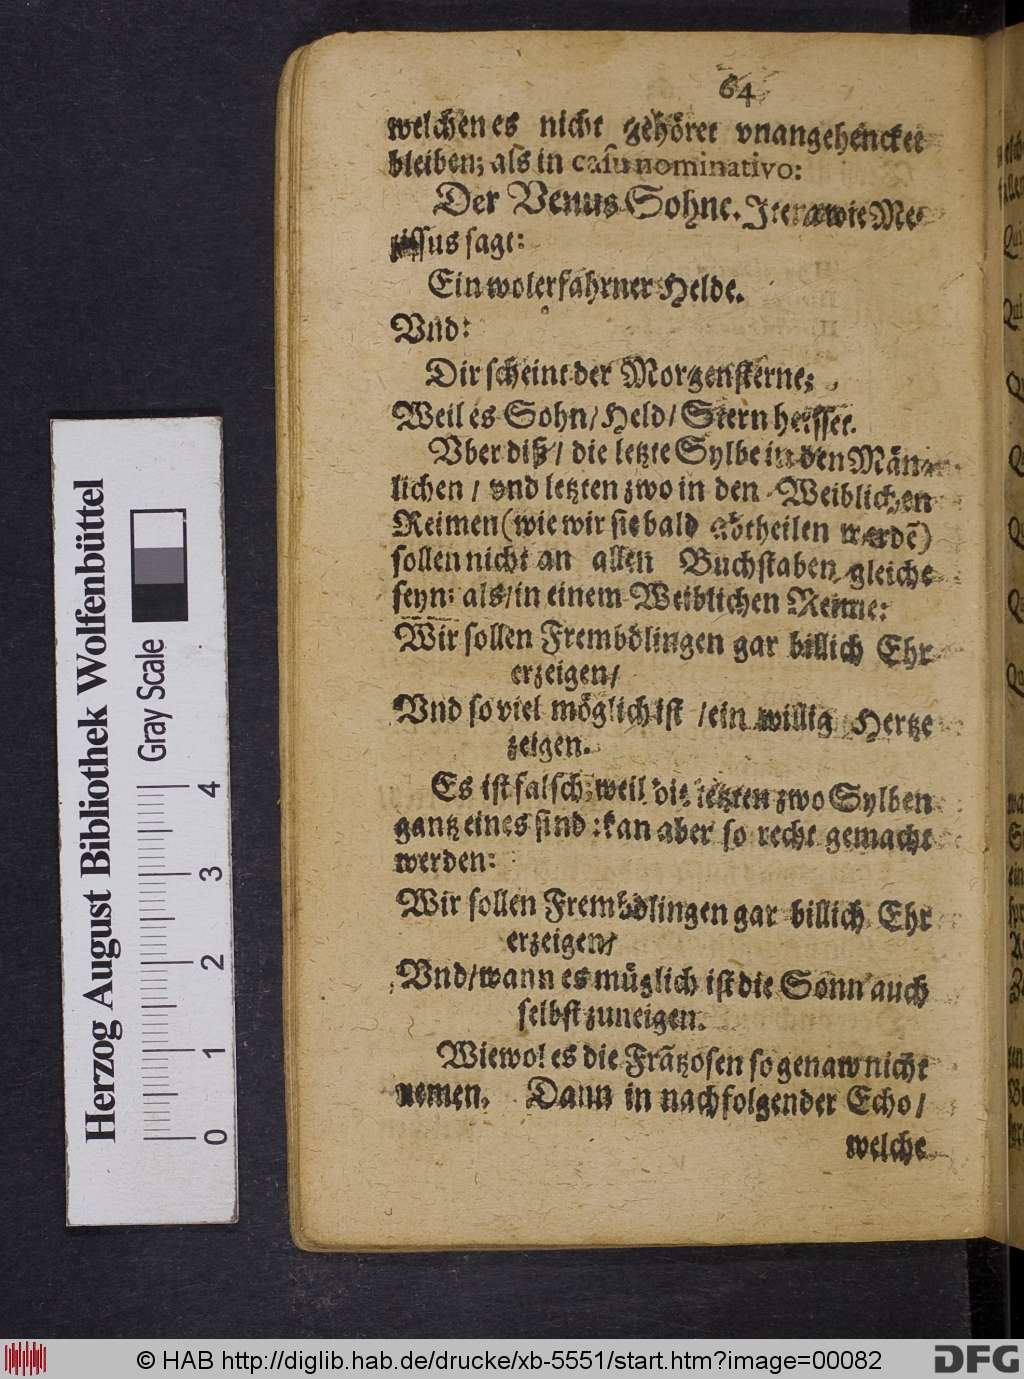 64
welchen es nicht gehöret vnangehencket
bleiben; als in casu nominativo:
Der Venus Sohne. Item wie Me-
lissus sagt:
Ein wolerfahrner Helde.
Vnd:
Dir scheint der Morgensterne;
Weil es Sohn / Held / Stern heisset.
Vber diß / die letzte Sylbe in den Män-
lichen / vnd letzten zwo in den Weiblichen
Reimen (wie wir sie bald abtheilen werdẽ)
sollen nicht an allen Buchstaben gleiche
seyn: als / in einem Weiblichen Reime:
Wir sollen Frembdlingen gar billich Ehr
erzeigen /
Vnd so viel möglich ist / ein willig Hertze
zeigen.
Es ist falsch; weil die letzten zwo Sylben
gantz eines sind: kan aber so recht gemacht
werden:
Wir sollen Frembdlingen gar billich Ehr
erzeigen /
Vnd / wann es müglich ist die Sonn auch
selbst zuneigen.
Wiewol es die Frãtzosen so genaw nicht
nemen. Dann in nachfolgender Echo /
welche
Herzog August Bibliothek Wolfenbüttel
Gray Scale
0 1 2 3 4
© HAB http://diglib.hab.de/drucke/xb-5551/start.htm?image=00082
DFG